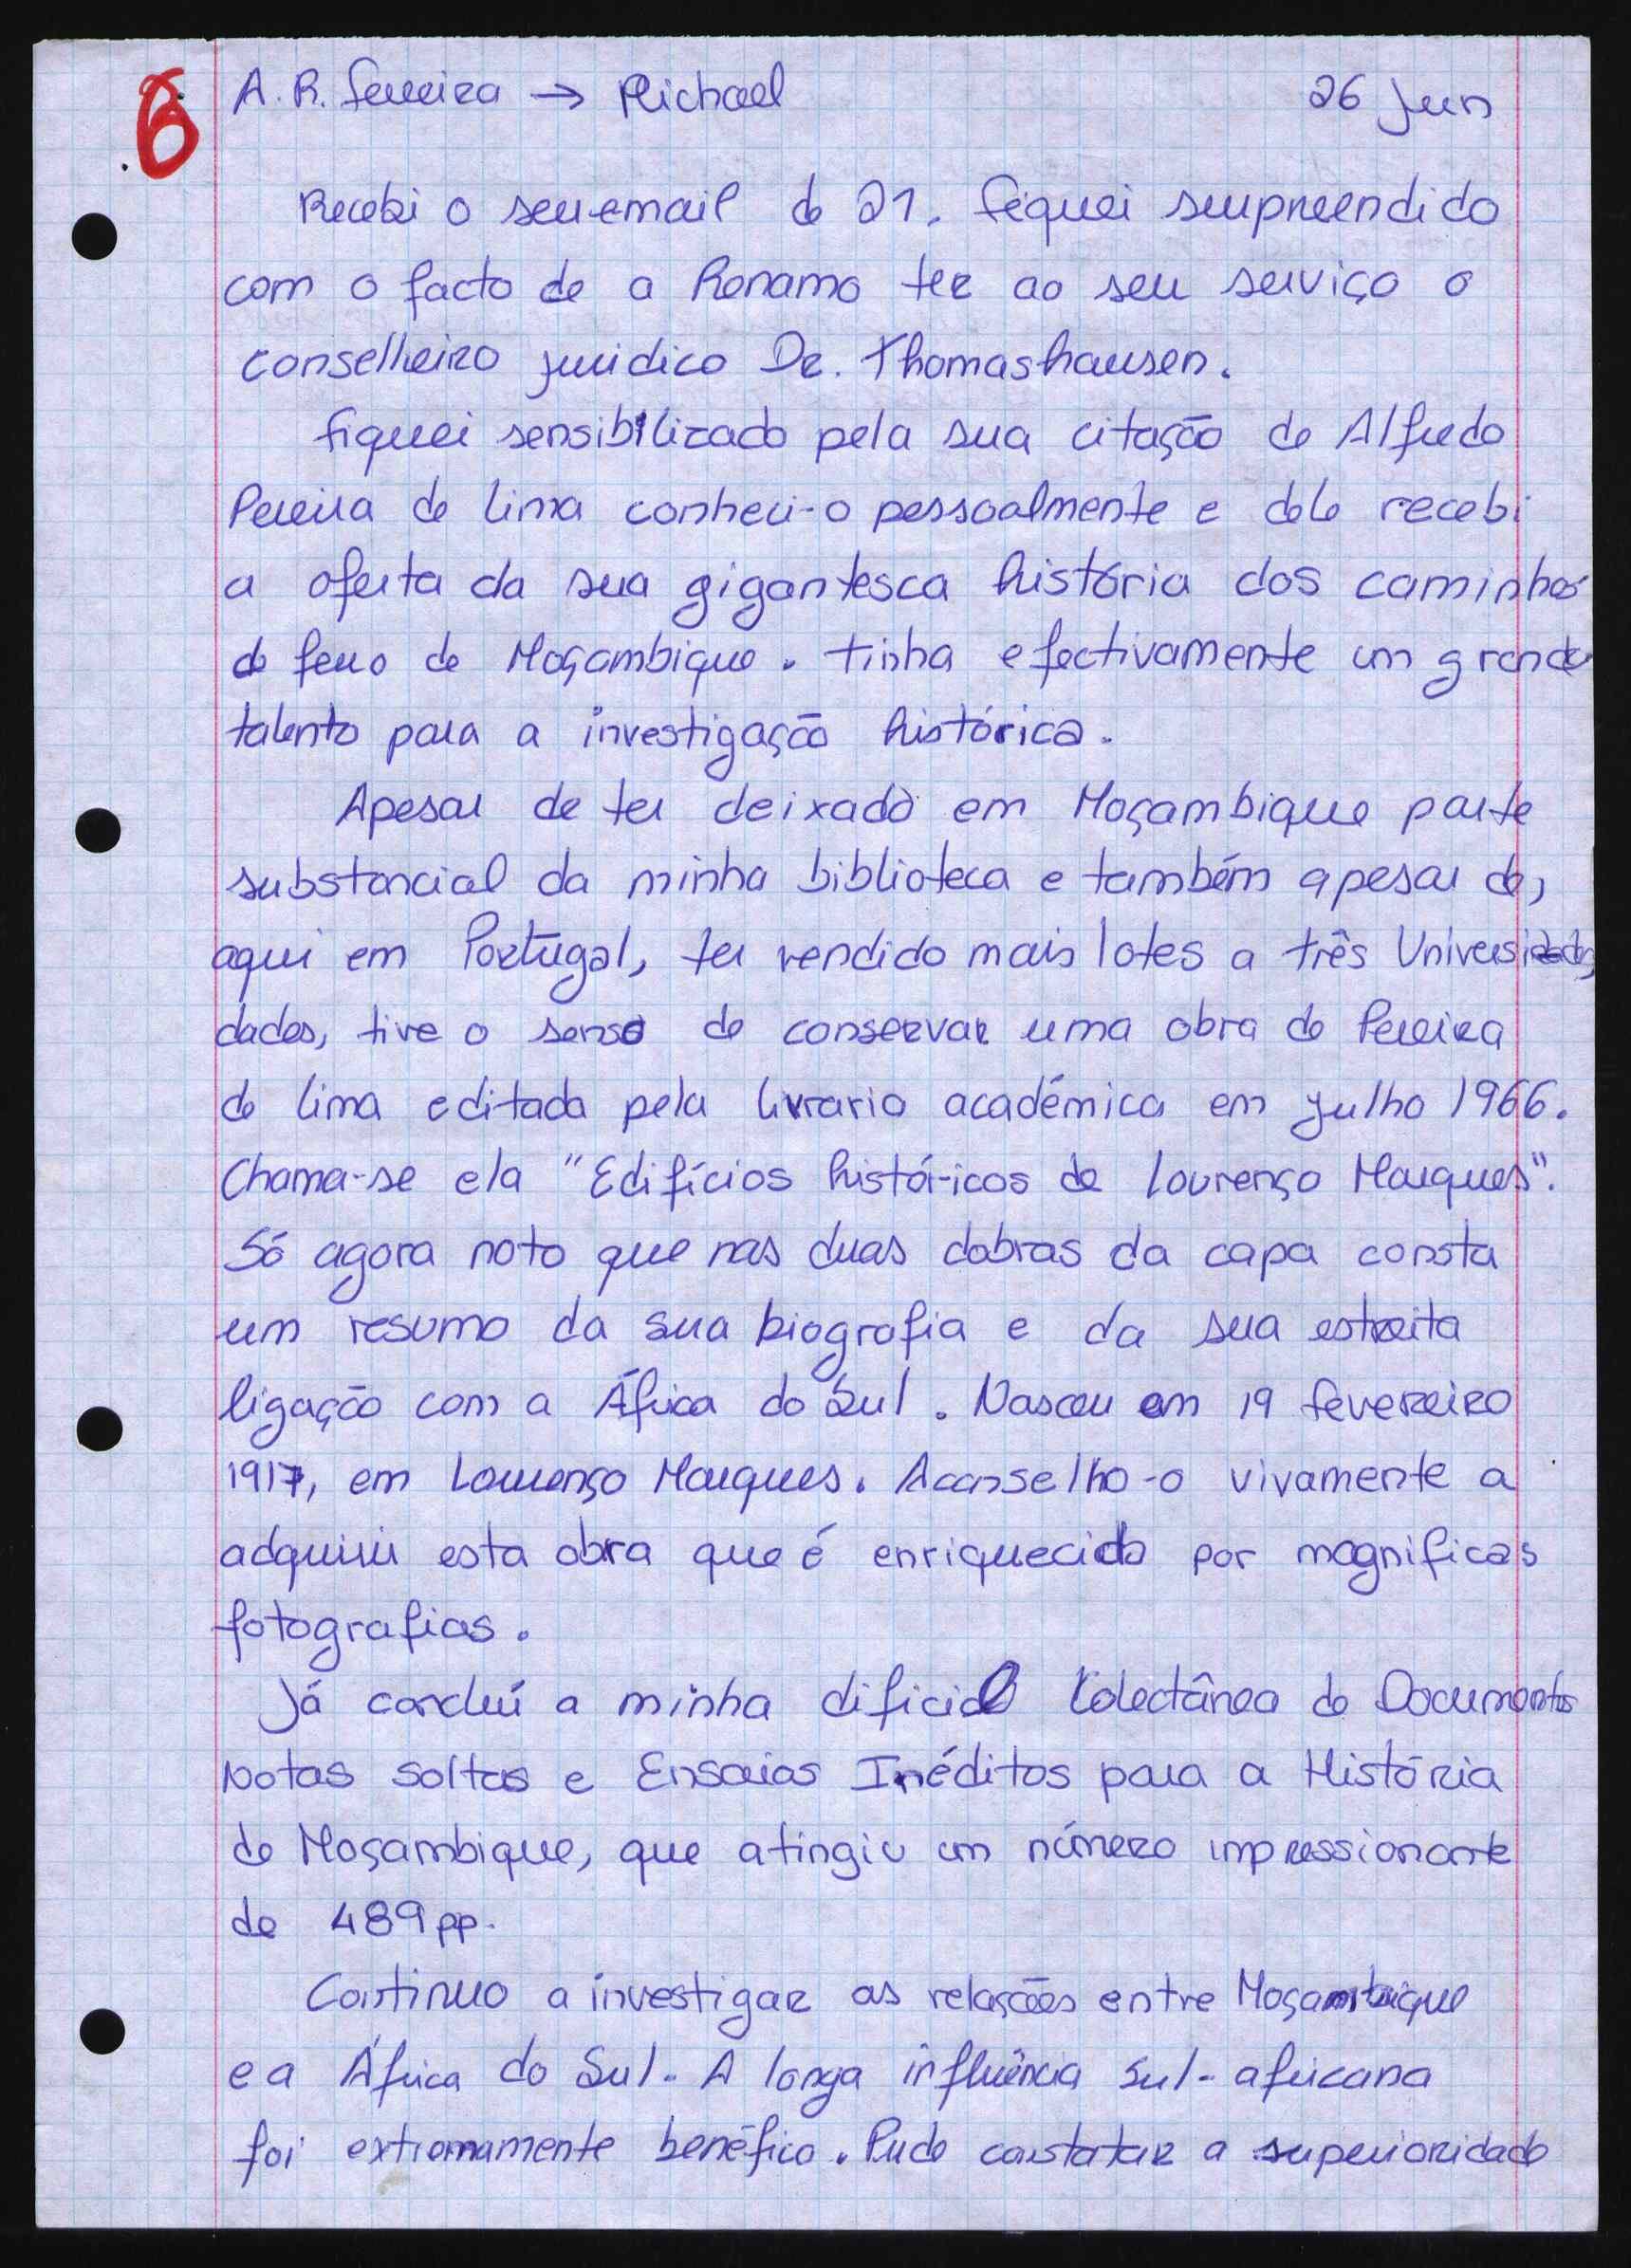 6
A. R. Ferreira → Michael 26 Jun
Recebi o seu email de 21. Fiquei surpreendido
com o facto de a Renamo ter ao seu serviço o
conselheiro jurídico Dr. Thomashausen.
Fiquei sensibilizado pela sua citação de Alfredo
Pereira de Lima conheci-o pessoalmente e dele recebi
a oferta da sua gigantesca história dos caminhos
de ferro de Moçambique. Tinha efectivamente um grande
talento para a investigação histórica.
Apesar de ter deixado em Moçambique parte
substancial da minha biblioteca e também apesar de,
aqui em Portugal, ter vendido mais lotes a três Universi
dades, tive o senso de conservar uma obra de Pereira
de Lima editada pela livraria académica em Julho 1966.
Chama-se ela "Edifícios históricos de Lourenço Marques".
Só agora noto que nas duas dobras da capa consta
um resumo da sua biografia e da sua estreita
ligação com a África do Sul. Nasceu em 19 Fevereiro
1917, em Lourenço Marques. Aconselho-o vivamente a
adquirir esta obra que é enriquecida por magnificas
fotografias.
Já concluí a minha dificil Colectânea de Documentos
Notas soltas e Ensaios Inéditos para a História
de Moçambique, que atingiu um número impressionante
de 489 pp.
Continuo a investigar as relações entre Moçambique
e a África do Sul. A longa influência sul-africana
foi extremamente benéfica. Pude constatar a superioridade